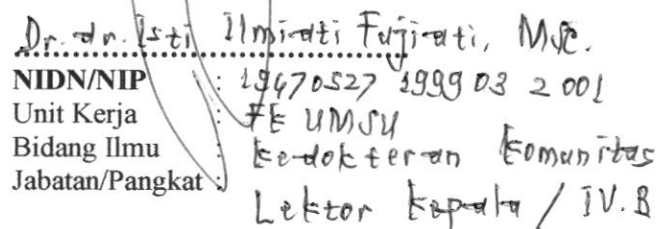 Dr. dr. Isti Ilmiati Fujiati, MSc.
NIDN/NIP : 19670527 1999 03 2 001
Unit Kerja : FK UMSU
Bidang Ilmu : Kedokteran Komunitas
Jabatan/Pangkat : Lektor Kepala / IV.B